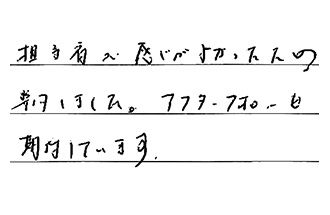 担当者の感じがよかったため
契約しました。アフターフォローも
期待しています。